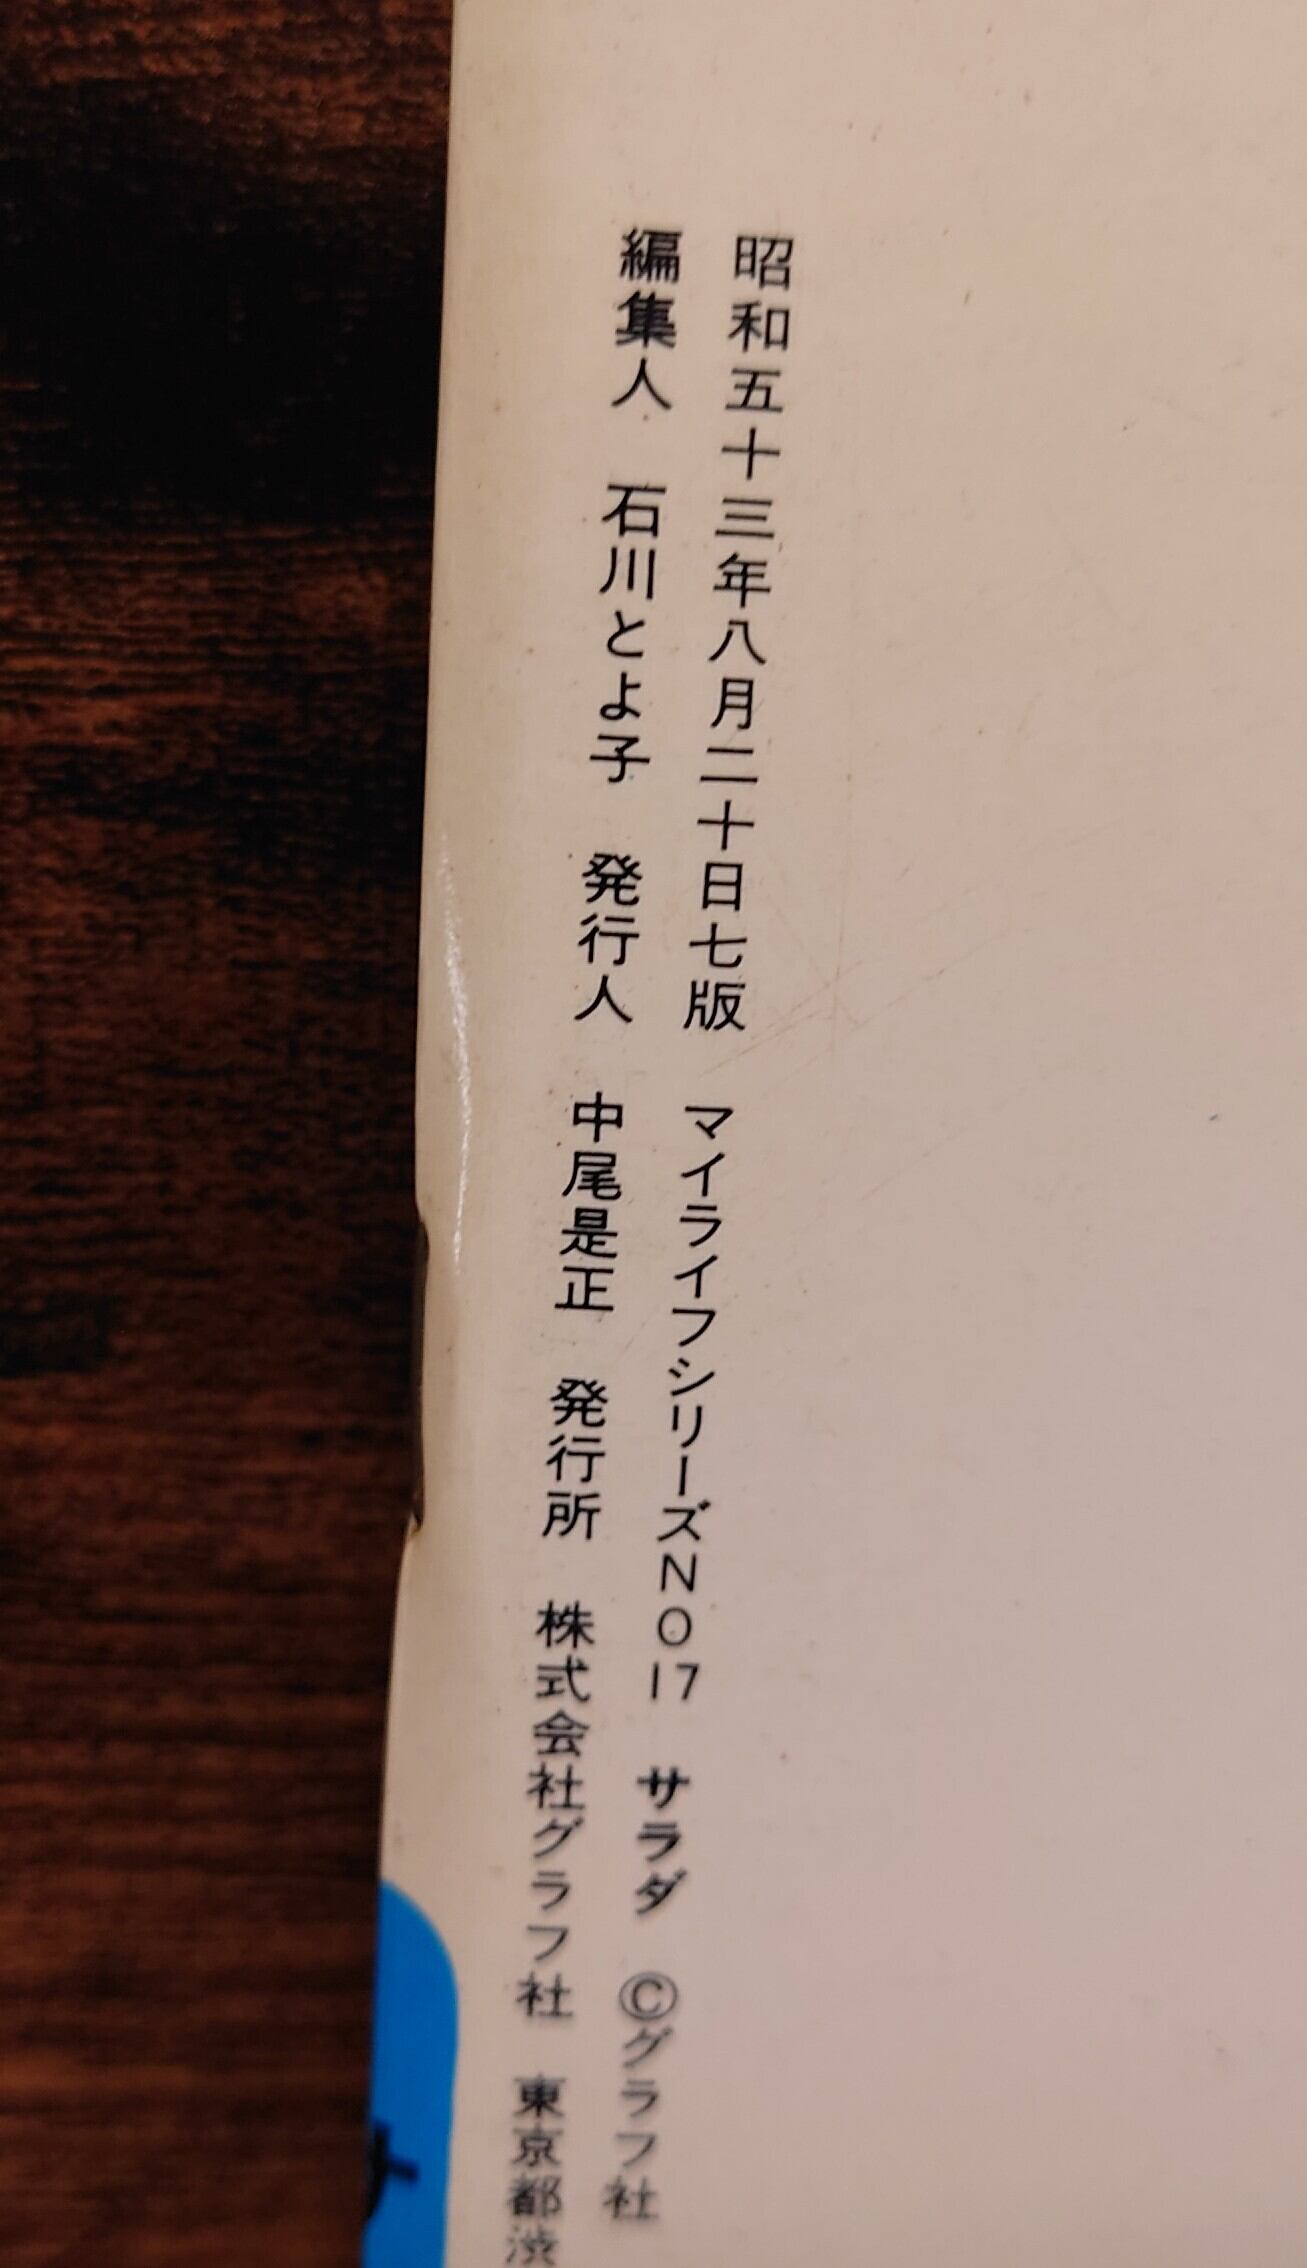 昭和五十三年八月二十日七版　マイライフシリーズNO17　サラダ　©グラフ社
編集人　石川とよ子　発行人　中尾是正　発行所　株式会社グラフ社　東京都渋